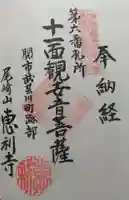 奉納経
第六番札所
十一面観世音菩薩
関市武芸川町跡部
尾崎山
恵利寺